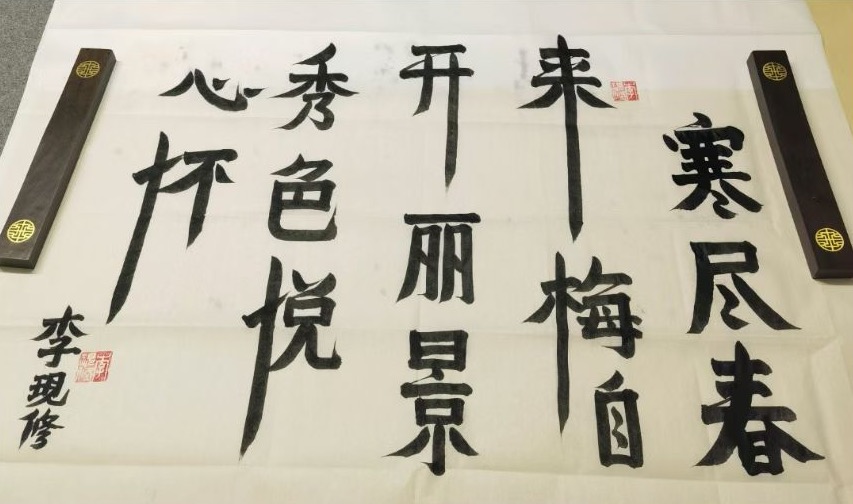 寒尽春
来梅自
开丽景
秀色悦
心怀
李现修